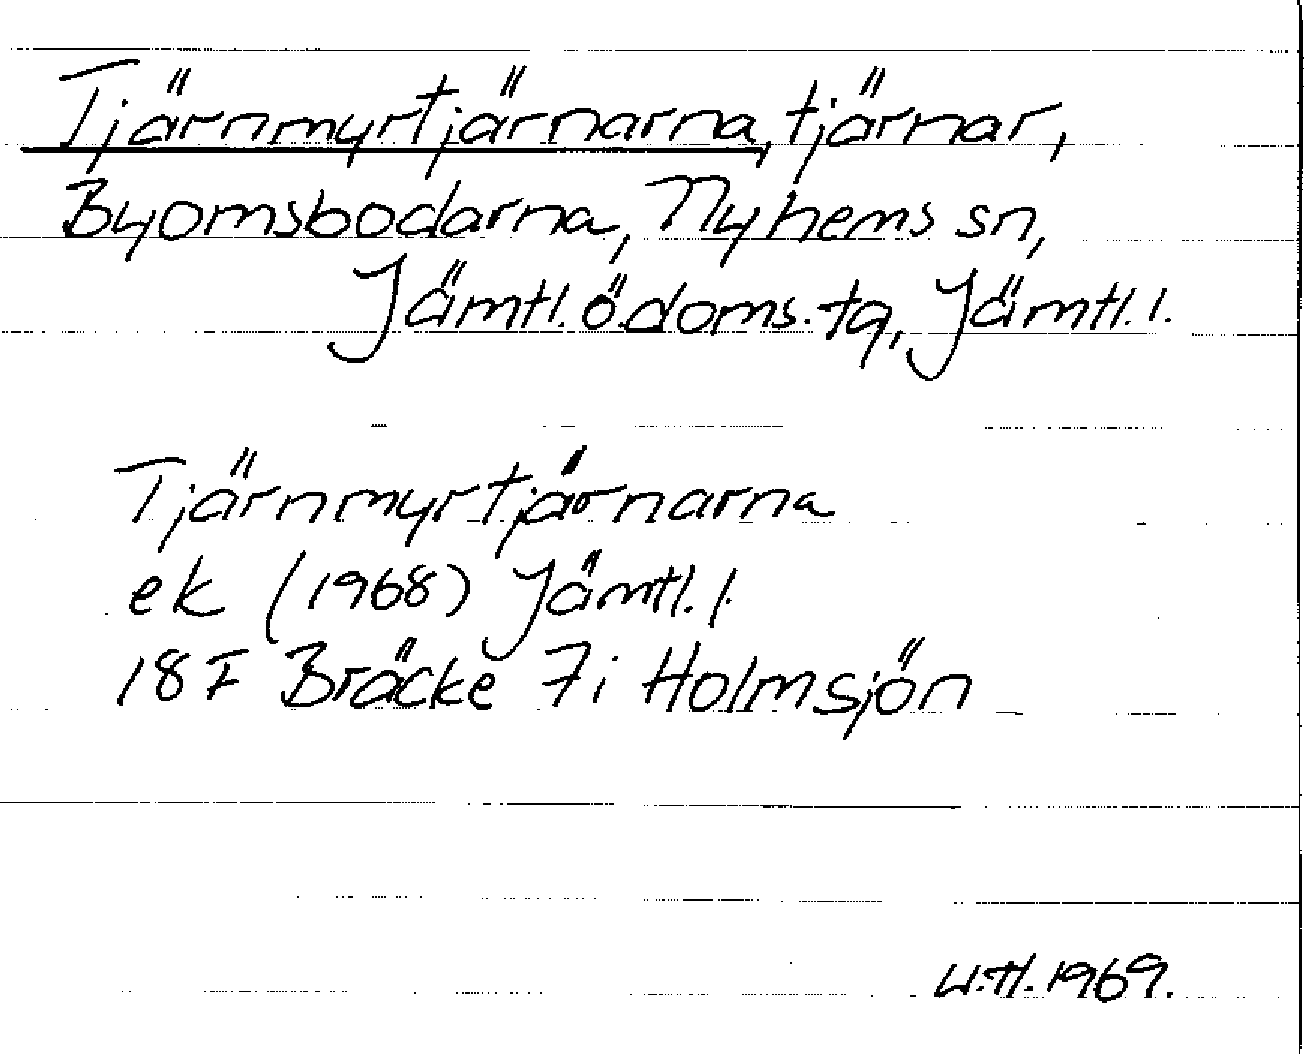 Tjärnmyrtjärnarna, tjärnar,
Byomsbodarna, Nyhems sn,
Jämtl. ö.doms. tg, Jämtl. l.
Tjärnmyrtjärnarna
ek (1968) Jämtl. l.
18F Bräcke 7i Holmsjön
u.tl. 1969.